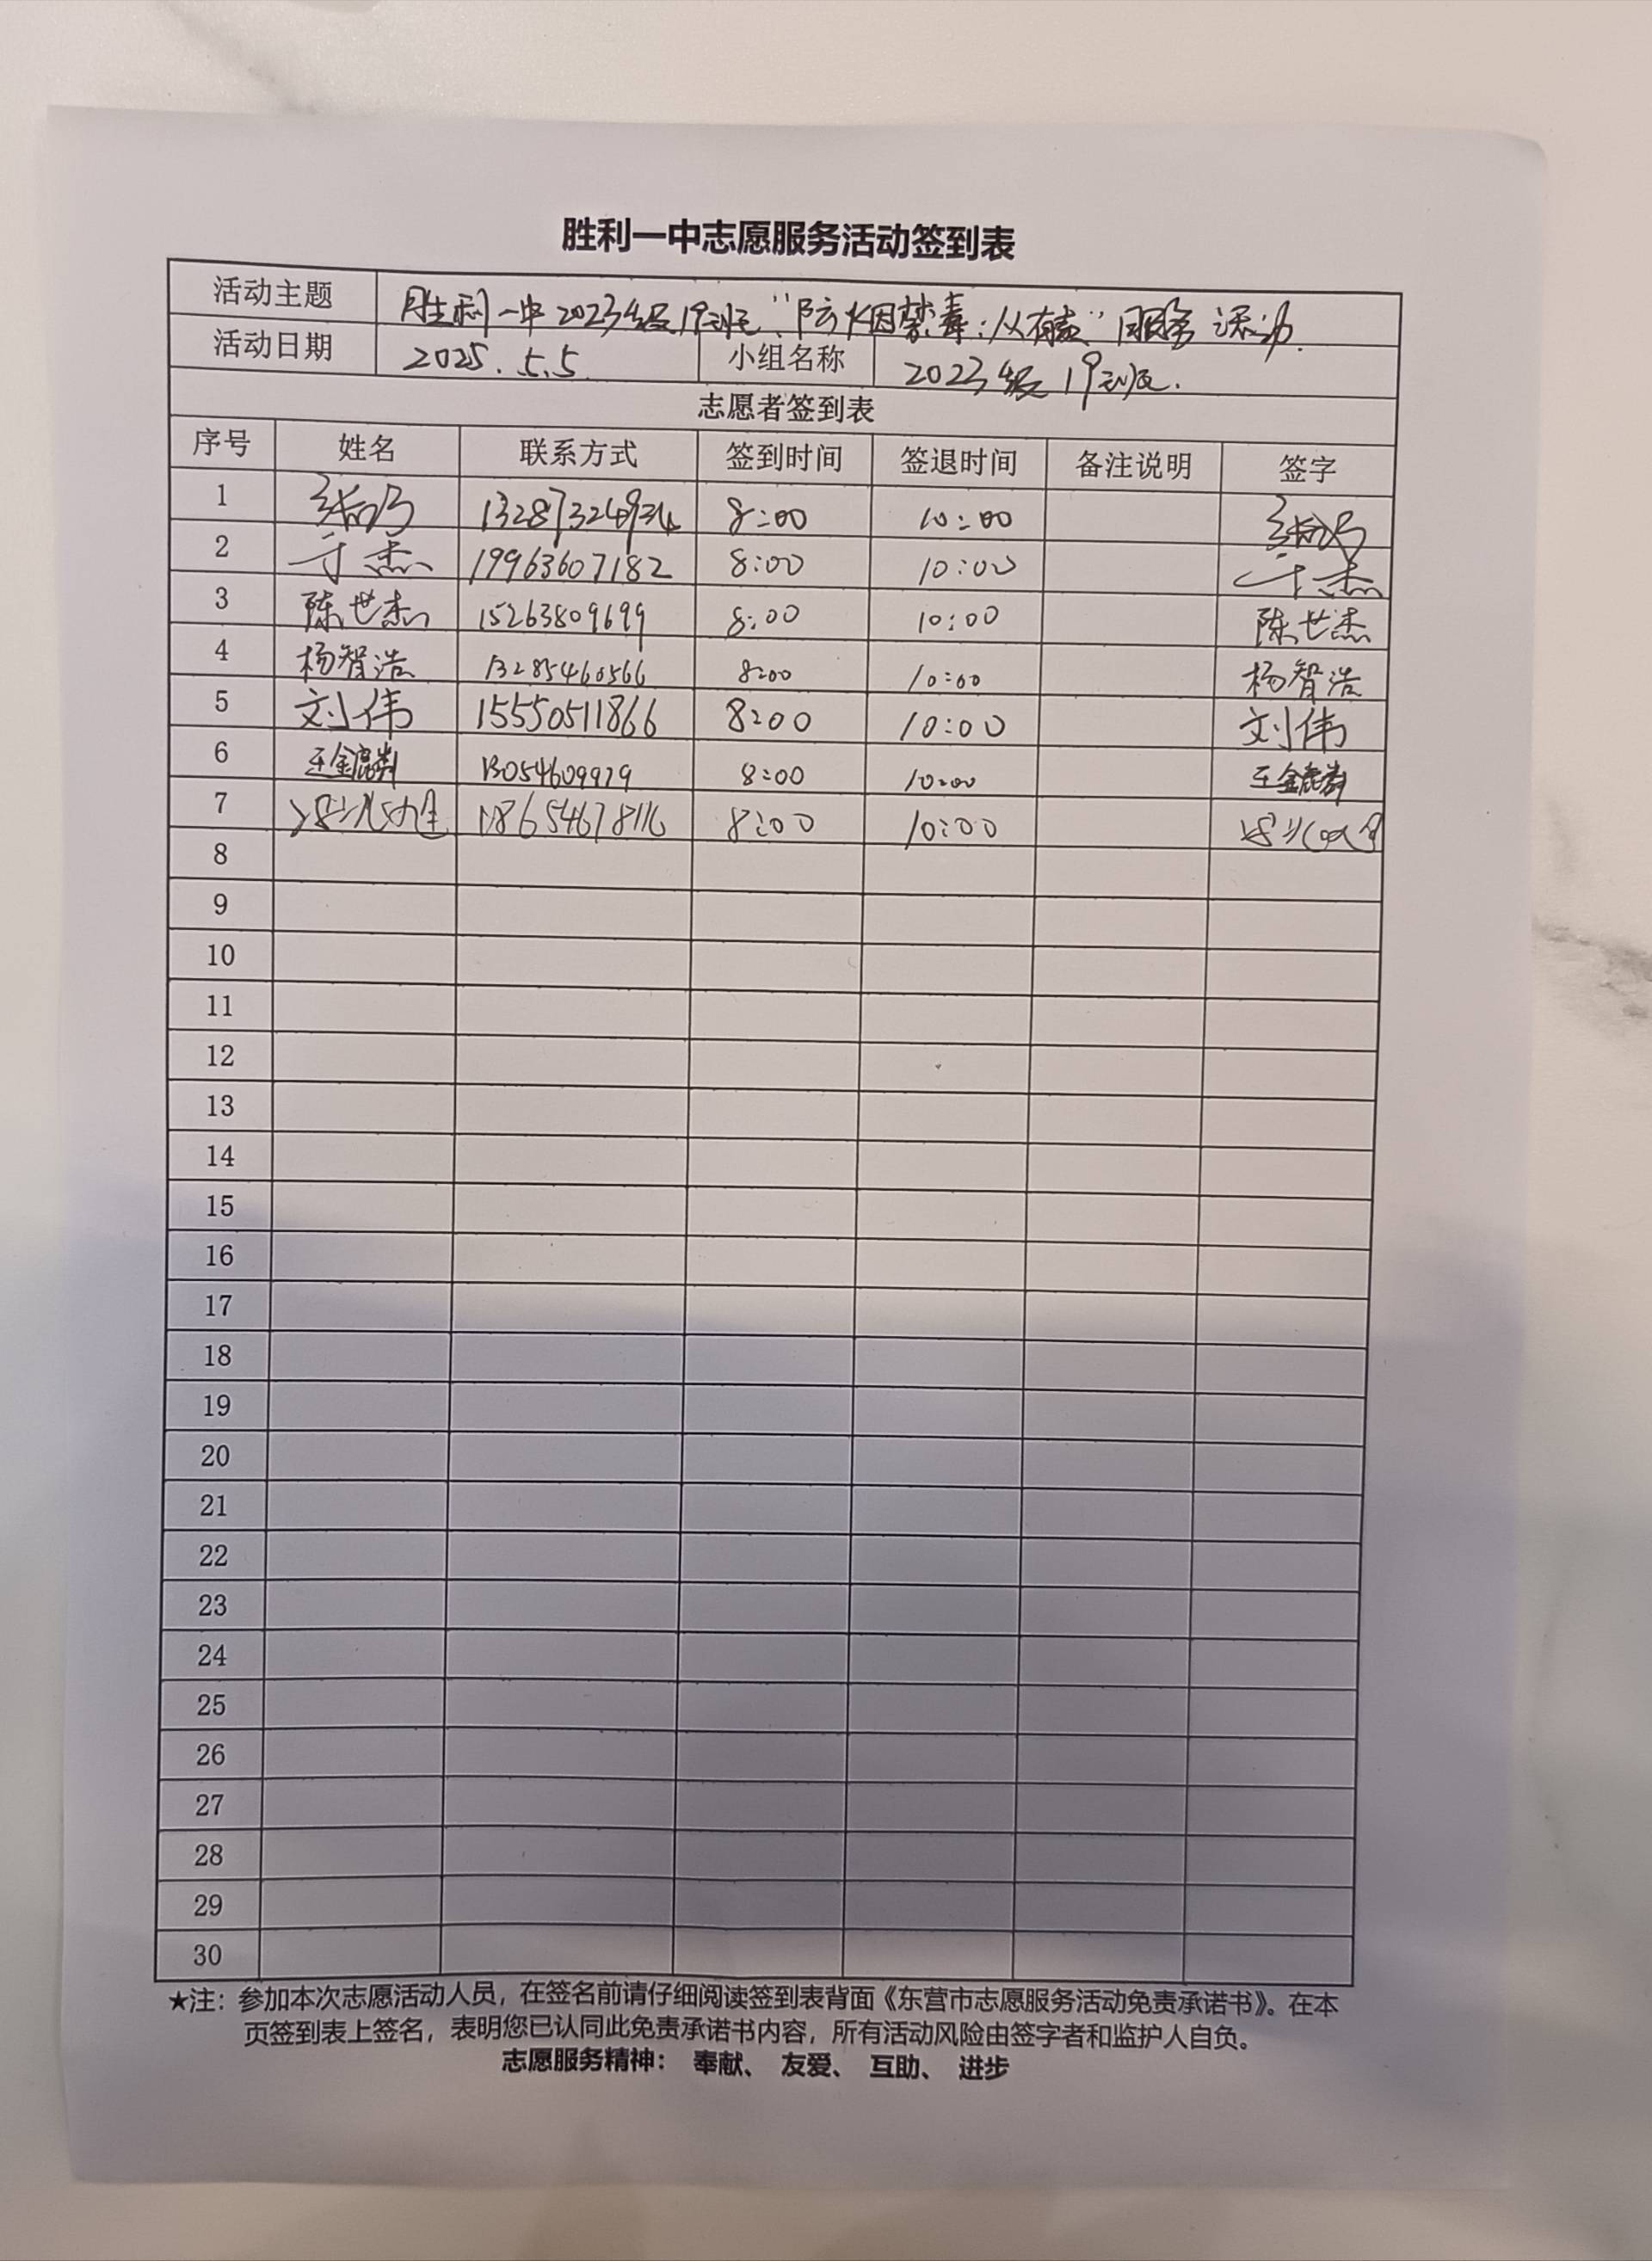 胜利一中志愿服务活动签到表
活动主题 胜利一中2023级19班"防烟禁毒,从有"服务活动.
活动日期 2025.5.5 小组名称 2023级19班.
志愿者签到表
序号 姓名 联系方式 签到时间 签退时间 备注说明 签字
1 8:00 10:00
2 于杰 19963607182 8:00 10:00 于杰
3 陈世杰 15263809699 8:00 10:00 陈世杰
4 杨智浩 13285460566 8:00 10:00 杨智浩
5 刘伟 15550511866 8:00 10:00 刘伟
6 王金麟 13054609979 8:00 10:00 王金麟
7 18654678116 8:00 10:00
8
9
10
11
12
13
14
15
16
17
18
19
20
21
22
23
24
25
26
27
28
29
30
★注：参加本次志愿活动人员，在签名前请仔细阅读签到表背面《东营市志愿服务活动免责承诺书》。在本
页签到表上签名，表明您已认同此免责承诺书内容，所有活动风险由签字者和监护人自负。
志愿服务精神： 奉献、 友爱、 互助、 进步